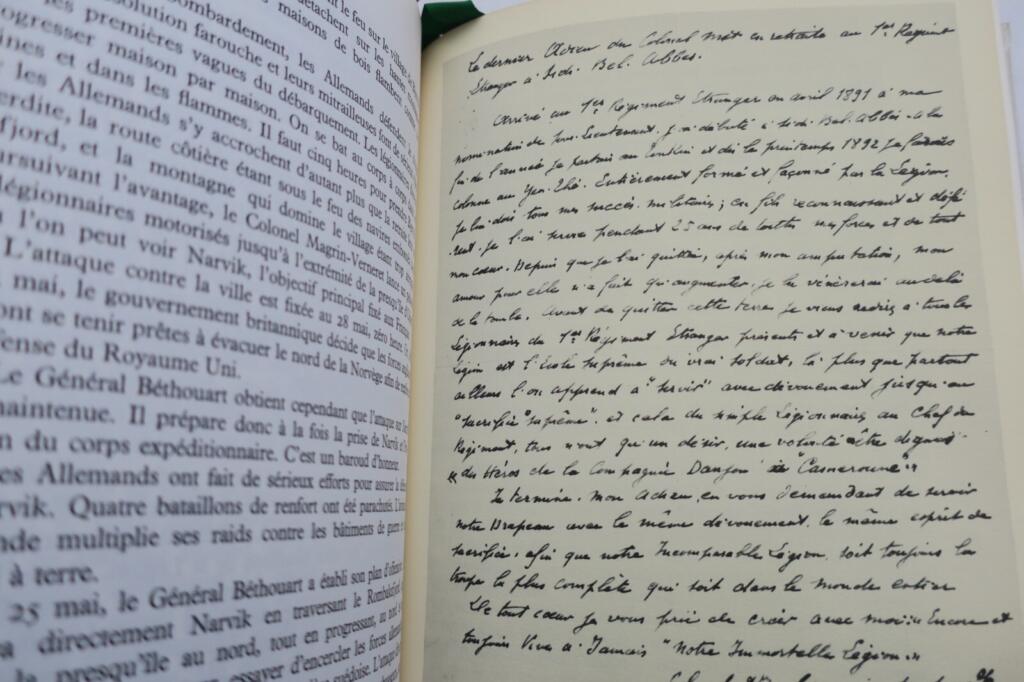 nt le feu sur le village de
détachent sur les hautes
bombardement, les Allemands défendent
maisons de bois flambent comme
solution farouche et leurs mitrailleuses font de
les premières vagues du débarquement. Les légionnaires
rogresser maison par maison. On se bat au corps à corps dans
ines et dans les flammes. Il faut cinq heures pour prendre
les Allemands s'y accrochent d'autant plus que la
erdite, la route côtière étant sous le feu des navires
fjord, et la montagne qui domine le village étant trop
oursuivant l'avantage, le Colonel Magrin-Verneret lance
légionnaires motorisés jusqu'à l'extrémité de la presqu'île
ù l'on peut voir Narvik, l'objectif principal fixé aux
L'attaque contre la ville est fixée au 28 mai, zéro heure.
mai, le gouvernement britannique décide que les forces
ont se tenir prêtes à évacuer le nord de la Norvège afin de
fense du Royaume Uni.
Le Général Béthouart obtient cependant que l'attaque sur
maintenue. Il prépare donc à la fois la prise de Narvik et
n du corps expéditionnaire. C'est un baroud d'honneur.
es Allemands ont fait de sérieux efforts pour assurer la
rvik. Quatre bataillons de renfort ont été parachutés.
nde multiplie ses raids contre les bâtiments de guerre
à terre.
25 mai, le Général Béthouart a établi son plan d'
a directement Narvik en traversant le Rombakfjord
la presqu'île au nord, tout en progressant, au nord
essayer d'encercler les forces
suédoise. L'
Le dernier Adieu du Colonel mis en retraite au 1er Régiment
Etranger à Sidi Bel Abbes.
Arrivé au 1er Régiment Etranger en avril 1891 à ma
nomination de Sous-Lieutenant. J'ai débuté à Sidi Bel Abbés. A la
fin de l'année je partais au Tonkin et dès le printemps 1892 je faisais
colonne au Yen-Thé. Entièrement formé et façonné par la Légion,
je lui dois tous mes succès militaires; en fils reconnaissant et défé
rent je l'ai servie pendant 25 ans de toutes mes forces et de tout
mon cœur. Depuis que je l'ai quittée, après mon amputation, mon
amour pour elle n'a fait qu'augmenter, je la vénèrerai au delà
de la tombe. Avant de quitter cette terre je viens redire à tous les
Légionnaires du 1er Régiment Etranger présents et à venir que notre
Légion est l'Ecole suprême du vrai soldat, là plus que partout
ailleurs l'on apprend à "servir" avec dévouement jusqu'au
"sacrifice suprême". et cela du simple Légionnaire au Chef de
Régiment, tous n'ont qu'un désir, une volonté être dignes
"des Héros de la Compagnie Danjou à "Camerone".
Je termine mon Adieu en vous demandant de servir
notre Drapeau avec le même dévouement, le même esprit de
sacrifice, afin que notre Incomparable Légion, soit toujours la
troupe la plus complète qui soit dans le monde entier
De tout cœur je vous prie de crier avec moi: Encore et
toujours Vive à Jamais "Notre Immortelle Légion"